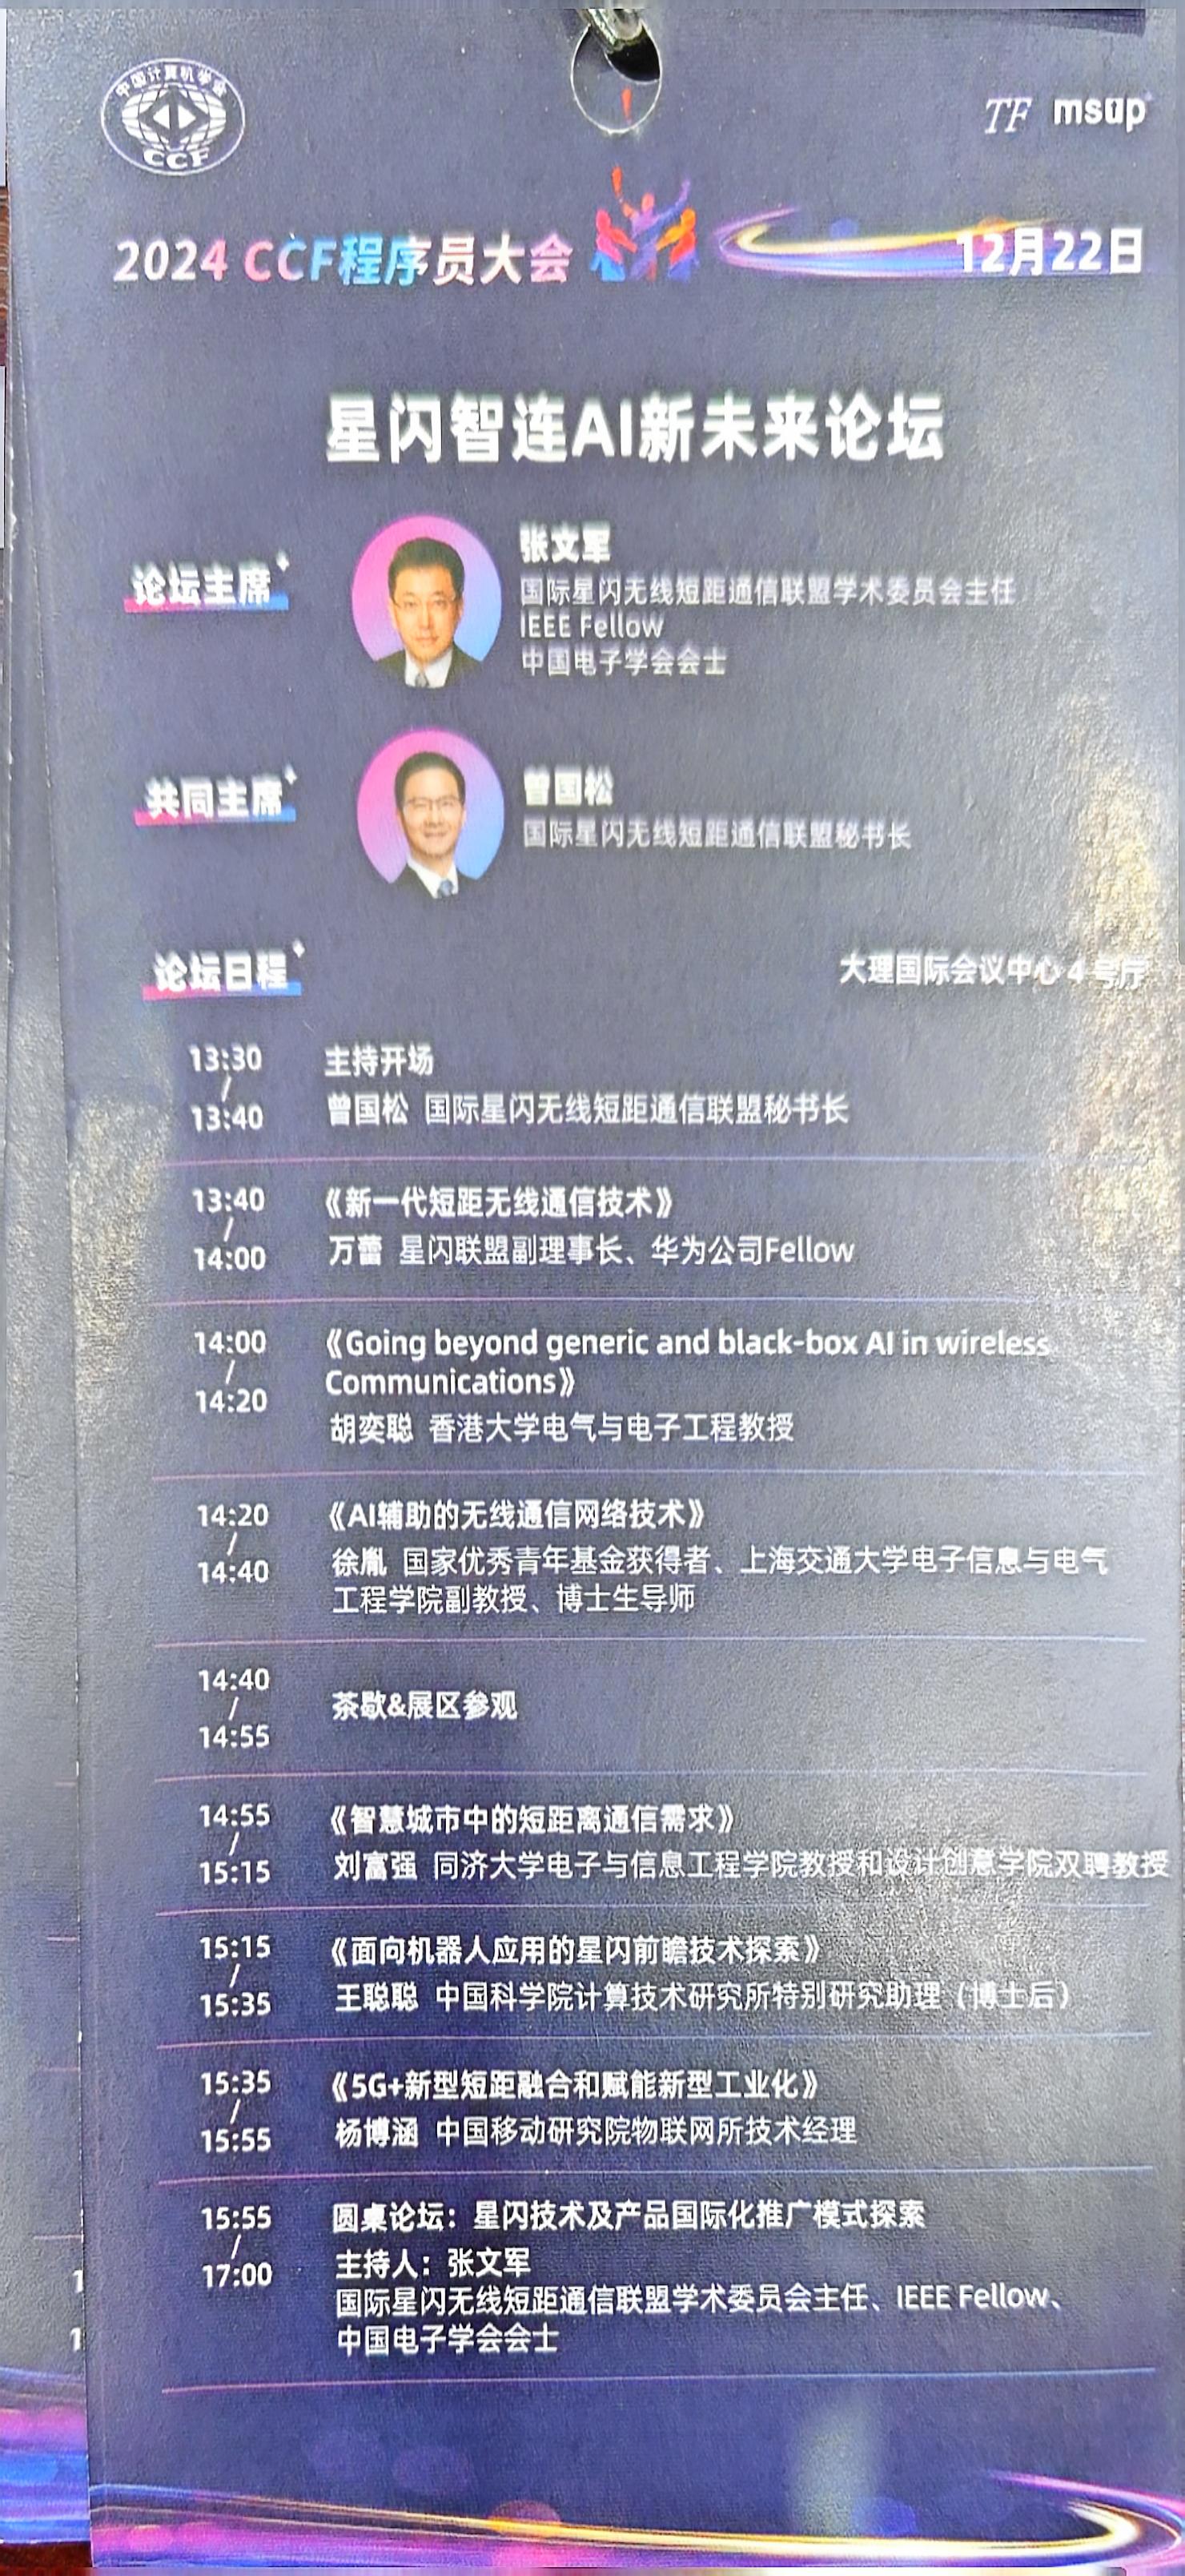 中国计算机学会
CCF
TF msup
2024 CCF程序员大会
12月22日
星闪智连AI新未来论坛
论坛主席
张文军
国际星闪无线短距通信联盟学术委员会主任
IEEE Fellow
中国电子学会会士
共同主席
曾国松
国际星闪无线短距通信联盟秘书长
论坛日程
大理国际会议中心 4 号厅
13:30
/
13:40
主持开场
曾国松 国际星闪无线短距通信联盟秘书长
13:40
/
14:00
《新一代短距无线通信技术》
万蕾 星闪联盟副理事长、华为公司Fellow
14:00
/
14:20
《Going beyond generic and black-box AI in wireless
Communications》
胡奕聪 香港大学电气与电子工程教授
14:20
/
14:40
《AI辅助的无线通信网络技术》
徐胤 国家优秀青年基金获得者、上海交通大学电子信息与电气
工程学院副教授、博士生导师
14:40
/
14:55
茶歇&展区参观
14:55
/
15:15
《智慧城市中的短距离通信需求》
刘富强 同济大学电子与信息工程学院教授和设计创意学院双聘教授
15:15
/
15:35
《面向机器人应用的星闪前瞻技术探索》
王聪聪 中国科学院计算技术研究所特别研究助理（博士后）
15:35
/
15:55
《5G+新型短距融合和赋能新型工业化》
杨博涵 中国移动研究院物联网所技术经理
15:55
/
17:00
圆桌论坛：星闪技术及产品国际化推广模式探索
主持人：张文军
国际星闪无线短距通信联盟学术委员会主任、IEEE Fellow、
中国电子学会会士